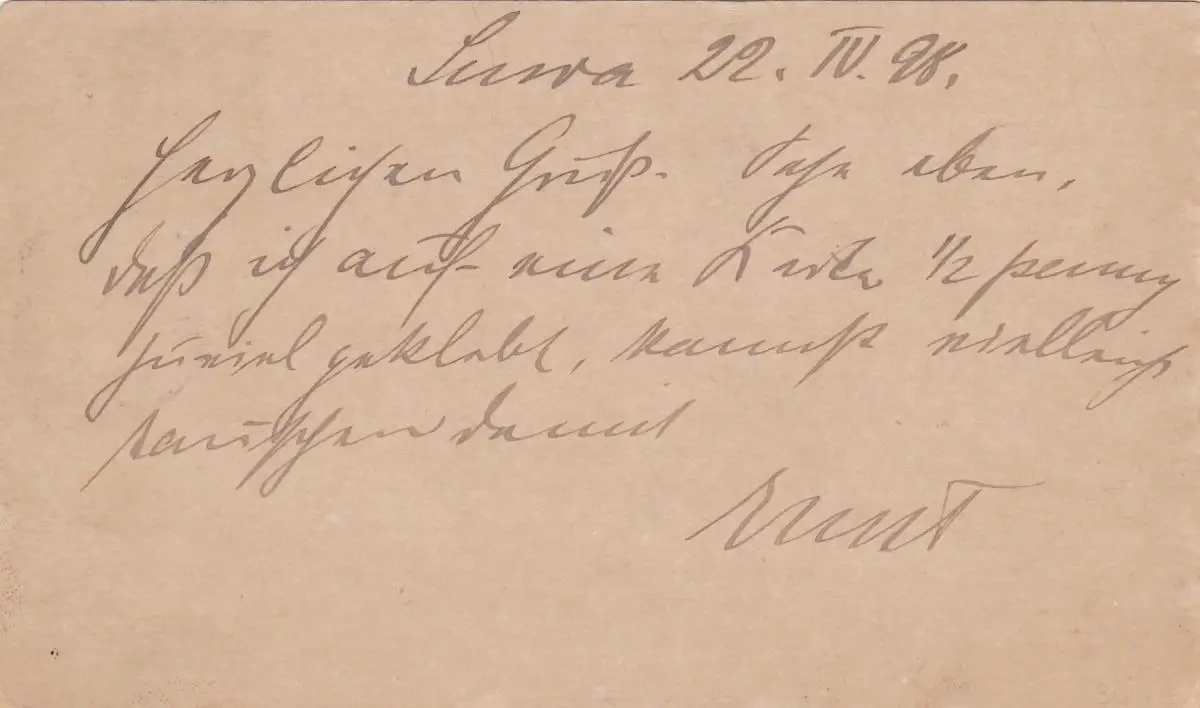 Suva 22. IV. 98.
Herzlichen Gruß. Sehe eben,
daß ich auf eine Karte 1/2 penny
zuviel geklebt, kannst vielleicht
tauschen damit
Ernst